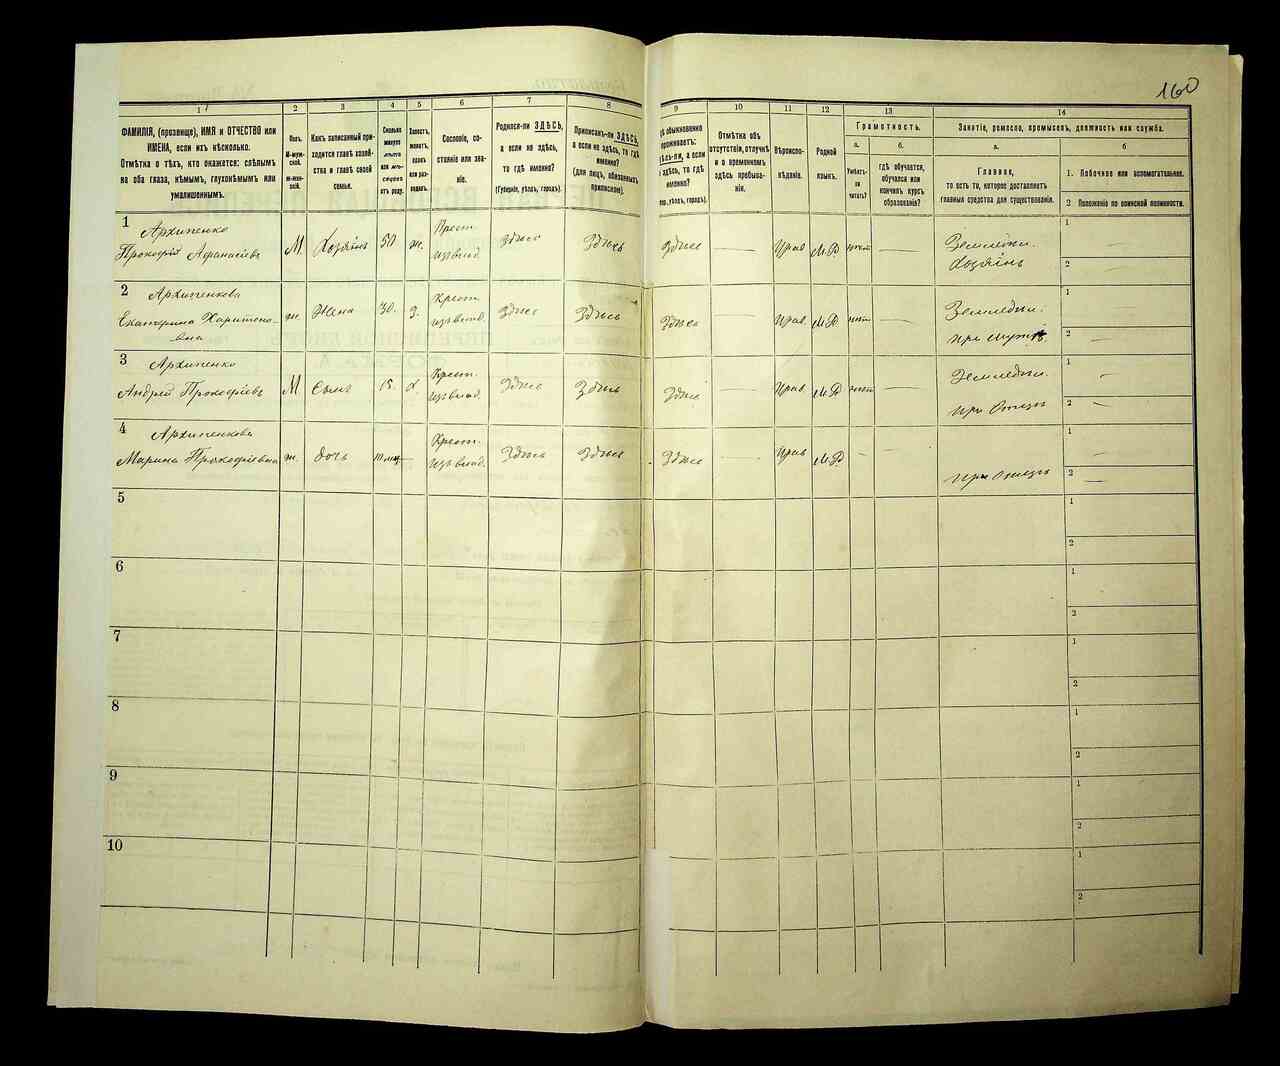 160
1
2
3
4
5
6
7
8
9
10
11
12
13
14
ФАМИЛІЯ, (прозвище), ИМЯ и ОТЧЕСТВО или
ИМЕНА, если ихъ нѣсколько.
Отмѣтка о тѣхъ, кто окажется: слѣпымъ
на оба глаза, нѣмымъ, глухонѣмымъ или
умалишеннымъ.
Полъ.
М-муж-
ской.
Ж-жен-
скій.
Какъ записанный при-
ходится главѣ хозяй-
ства и главѣ своей
семьи.
Сколько
минуло
лѣтъ
или мѣ-
сяцевъ
отъ роду.
Холостъ,
женатъ,
вдовъ
или раз-
веденъ.
Сословіе, со-
стояніе или зва-
ніе.
Родился-ли ЗДѢСЬ,
а если не здѣсь,
то гдѣ именно?
(Губернія, уѣздъ, городъ).
Приписанъ-ли ЗДѢСЬ,
а если не здѣсь, то гдѣ
именно?
(для лицъ, обязанныхъ
припискою).
обыкновенно
проживаетъ:
а если
здѣсь, то гдѣ
именно?
уѣздъ, городъ).
Отмѣтка объ
отсутствіи, отлучкѣ
и о временномъ
здѣсь пребыва-
ніи.
Вѣроиспо-
вѣданіе.
Родной
языкъ.
Грамотность.
а.
Умѣетъ-
ли
читать?
б.
гдѣ обучается,
обучался или
кончилъ курсъ
образованія?
Занятіе, ремесло, промыселъ, должность или служба.
а.
Главное,
то есть то, которое доставляетъ
главныя средства для существованія.
б
1. Побочное или вспомогательное.
2 Положеніе по воинской повинности.
1
Архипенко
Прокофій Афанасіевъ
М
Хозяинъ
50
ж.
Крест.
изъ влад.
Здѣсь
Здѣсь
Здѣсь
—
Прав
М.Р.
нѣтъ
—
Земледѣл.
Хозяинъ
1
—
2
—
2
Архипенкова
Екатерина Харитоно-
вна
ж.
Жена
30.
З.
Крест.
изъ влад.
Здѣсь
Здѣсь
Здѣсь
—
Прав.
М.Р
нѣтъ
—
Земледѣл.
при мужѣ.
1
—
2
—
3
Архипенко
Андрей Прокофіевъ
М
Сынъ
15.
Х
Крест.
изъ влад.
Здѣсь
Здѣсь
Здѣсь
—
Прав
М.Р
нѣтъ
—
Земледѣл.
при Отцѣ
1
—
2
—
4
Архипенкова
Марина Прокофіевна
ж.
дочь
—
Крест.
изъ влад.
Здѣсь
Здѣсь
Здѣсь
—
Прав
М.Р
—
—
при Отцѣ
1
—
2
—
5
1
2
6
1
2
7
1
2
8
1
2
9
1
2
10
1
2